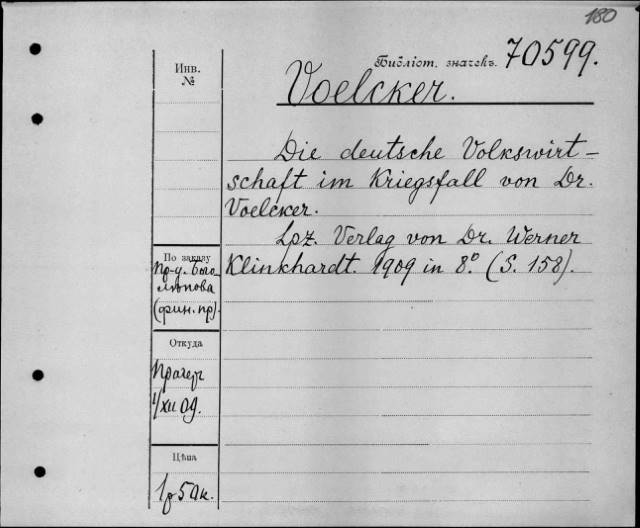 180
Библіот. значекъ. 70599.
Инв.
№
Voelcker.
Die deutsche Volkswirt-
schaft im Kriegsfall von Dr.
Voelcker.
Lpz. Verlag von Dr. Werner
Klinkhardt. 1909 in 8º. (S. 158).
По заказу
пр-у. Бого-
лѣпова
(фин. пр).
Откуда
1/XII 09.
Цѣна
1р 50к.